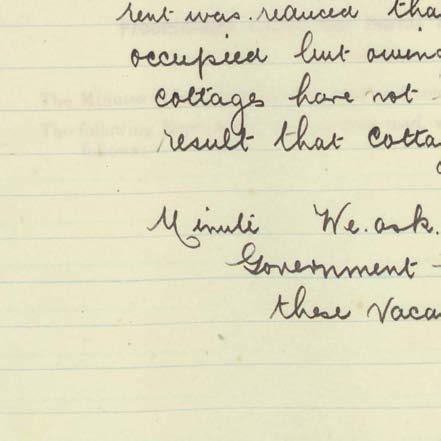 rent was reduced tha
occupied but owin
cottages have not
result that cotta
Minute We ask.
Government
these Vaca